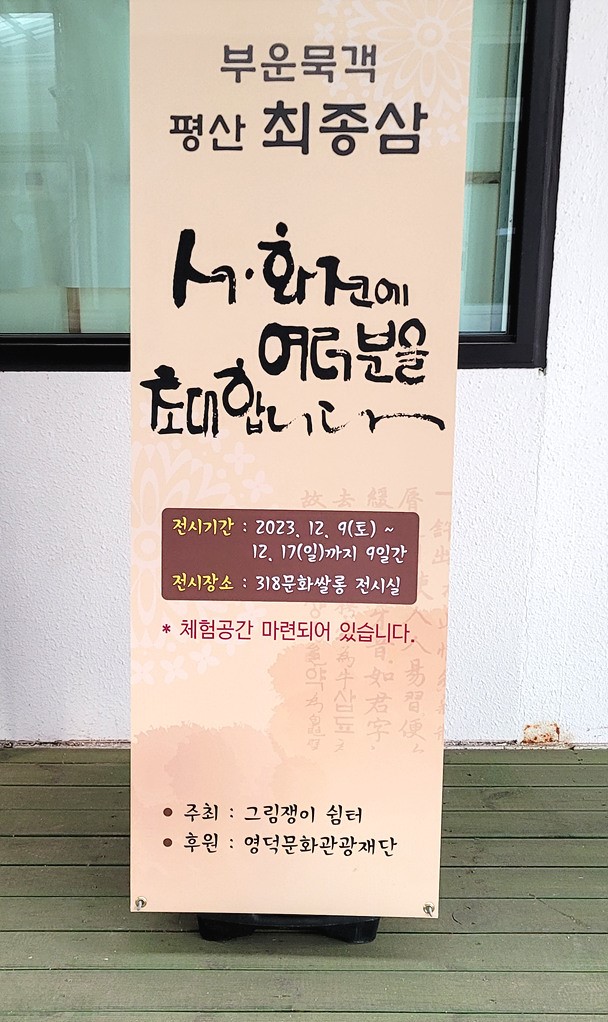 부운묵객
평산 최종삼
서·화전에
여러분을
초대합니다
전시기간 : 2023. 12. 9(토) ~
12. 17(일)까지 9일간
전시장소 : 318문화쌀롱 전시실
* 체험공간 마련되어 있습니다.
● 주최 : 그림쟁이 쉼터
● 후원 : 영덕문화관광재단